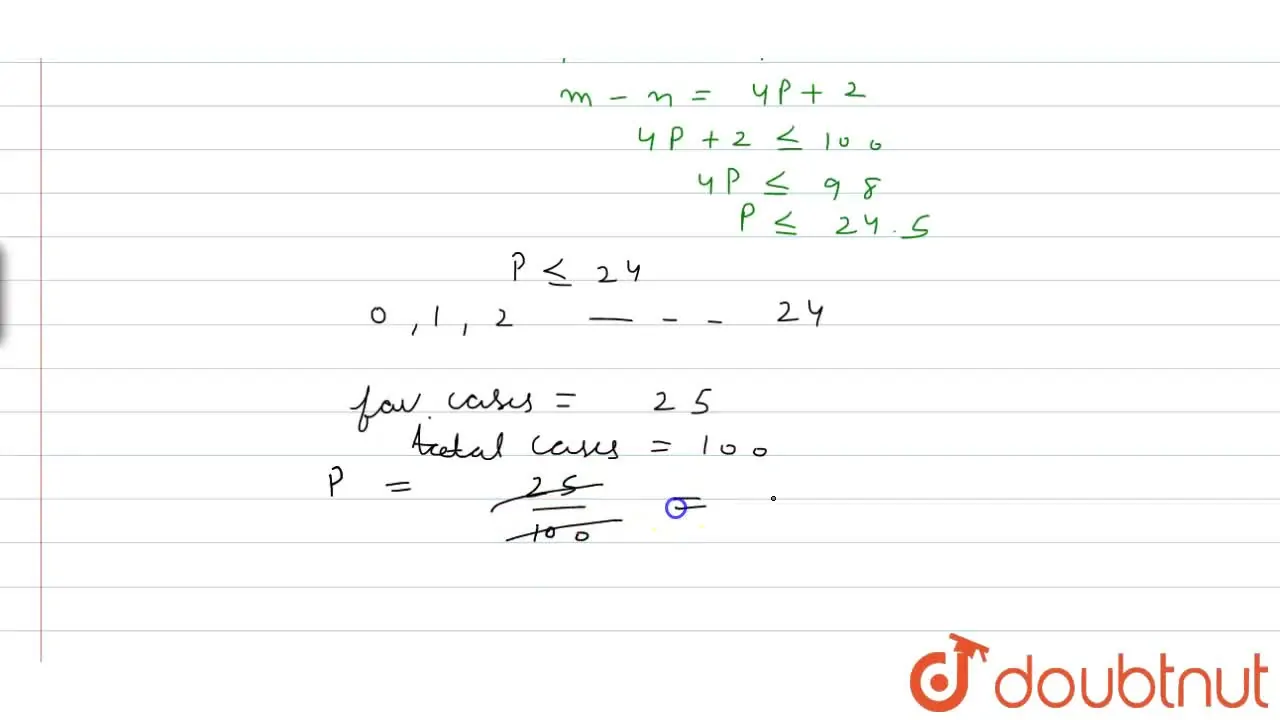 m - n = 4P + 2
4P + 2 ≤ 100
4P ≤ 98
P ≤ 24.5
P ≤ 24
0, 1, 2 — - - 24
fav. cases = 25
total cases = 100
P = 25/100 =
doubtnut